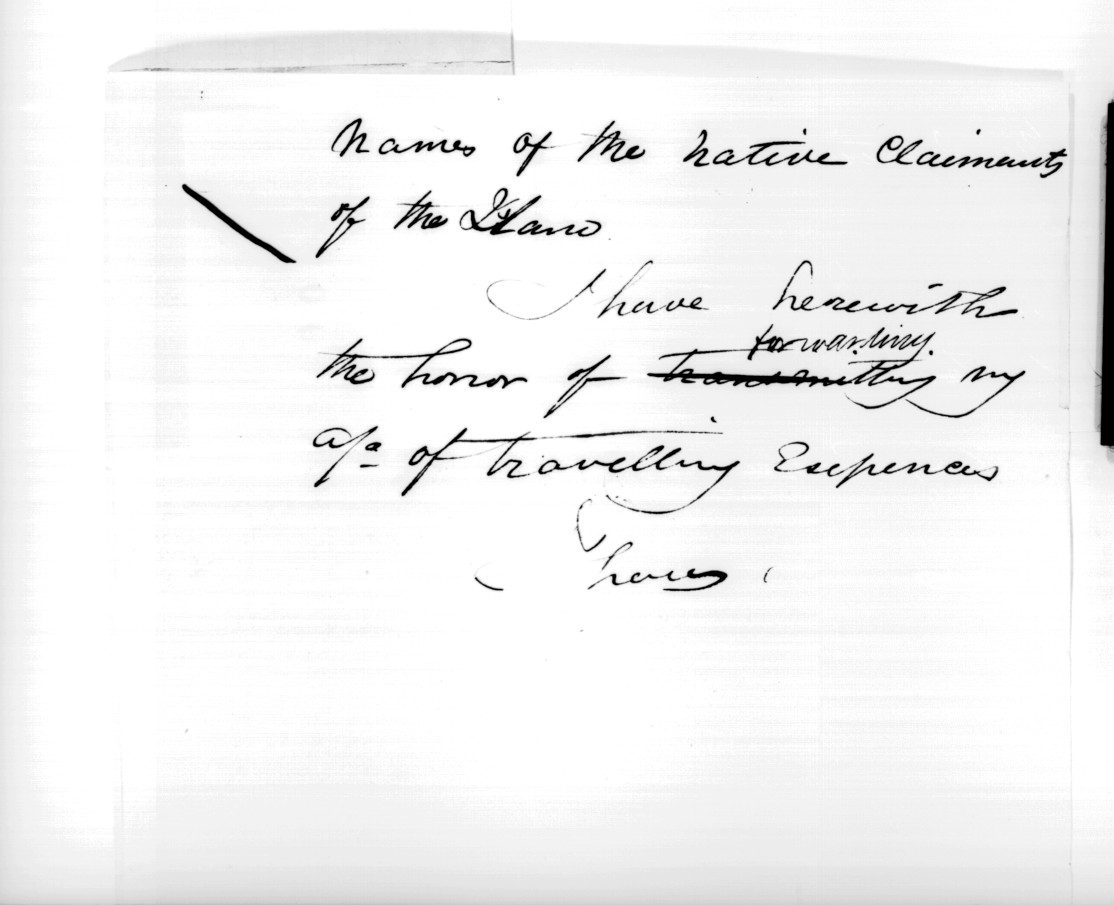 Names of the Native Claimants
of the Island
I have herewith
forwarding
the honor of transmitting my
a/c of travelling Expences
I have